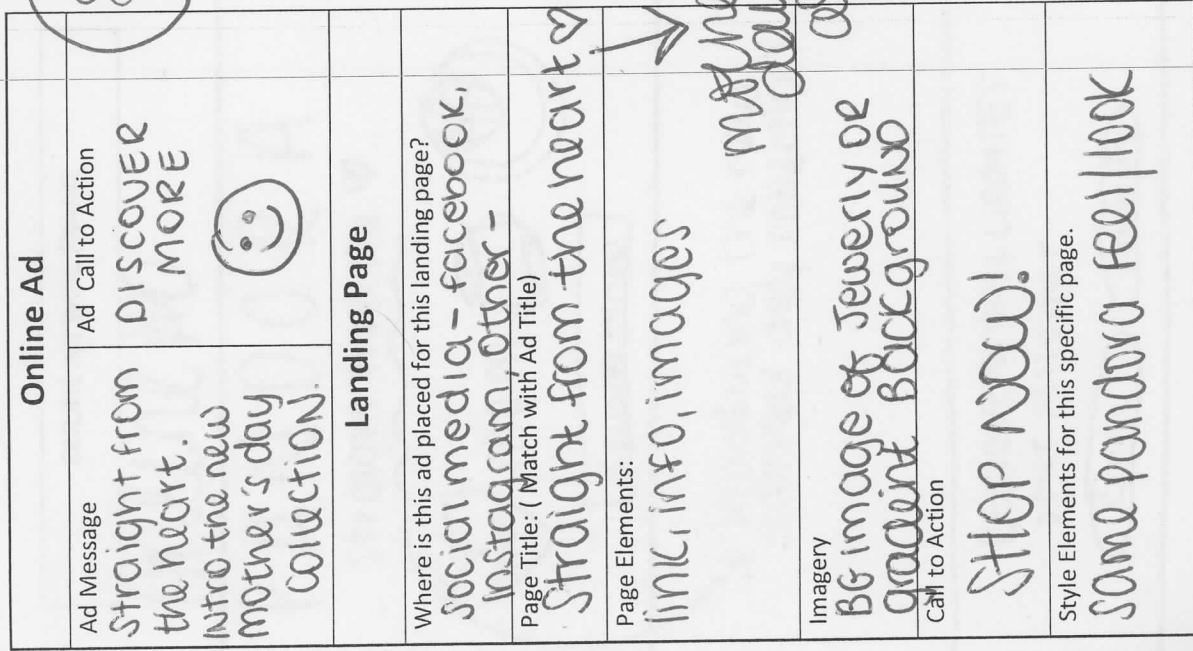 Online Ad
Ad Message
Straight from
the heart.
Intro the new
mother's day
collection.
Ad Call to Action
DISCOVER
MORE
Landing Page
Where is this ad placed for this landing page?
social media - facebook,
instagram, other -
Page Title: ( Match with Ad Title)
Straight from the heart ♡
Page Elements:
link, info, images
Imagery
BG image of Jewerly OR
gradeint BackgrouND
Call to Action
SHOP NOW!
Style Elements for this specific page.
same pandora feel/look